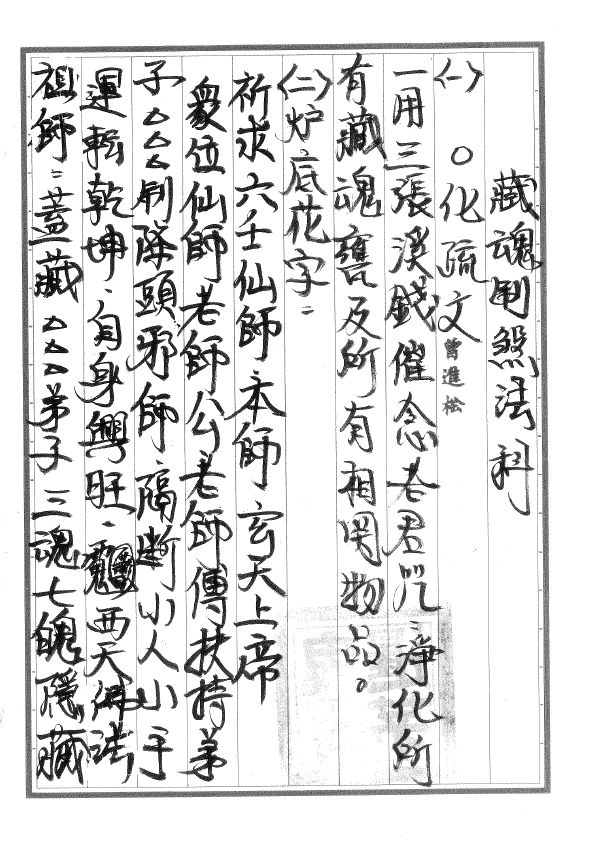 藏魂制煞法科
㈠ ○化疏文 曾進松
一用三張溪錢催念老君咒:淨化所
有藏魂甕及所有相関物品。
㈡炉底花字:
祈求六壬仙師本師玄天上帝
眾位仙師老師公老師傅扶持弟
子△△△制降頭邪師、隔断小人小手
運転乾坤、自身興旺、西天佛法
祖師:蓋藏△△△弟子三魂七魄隱藏